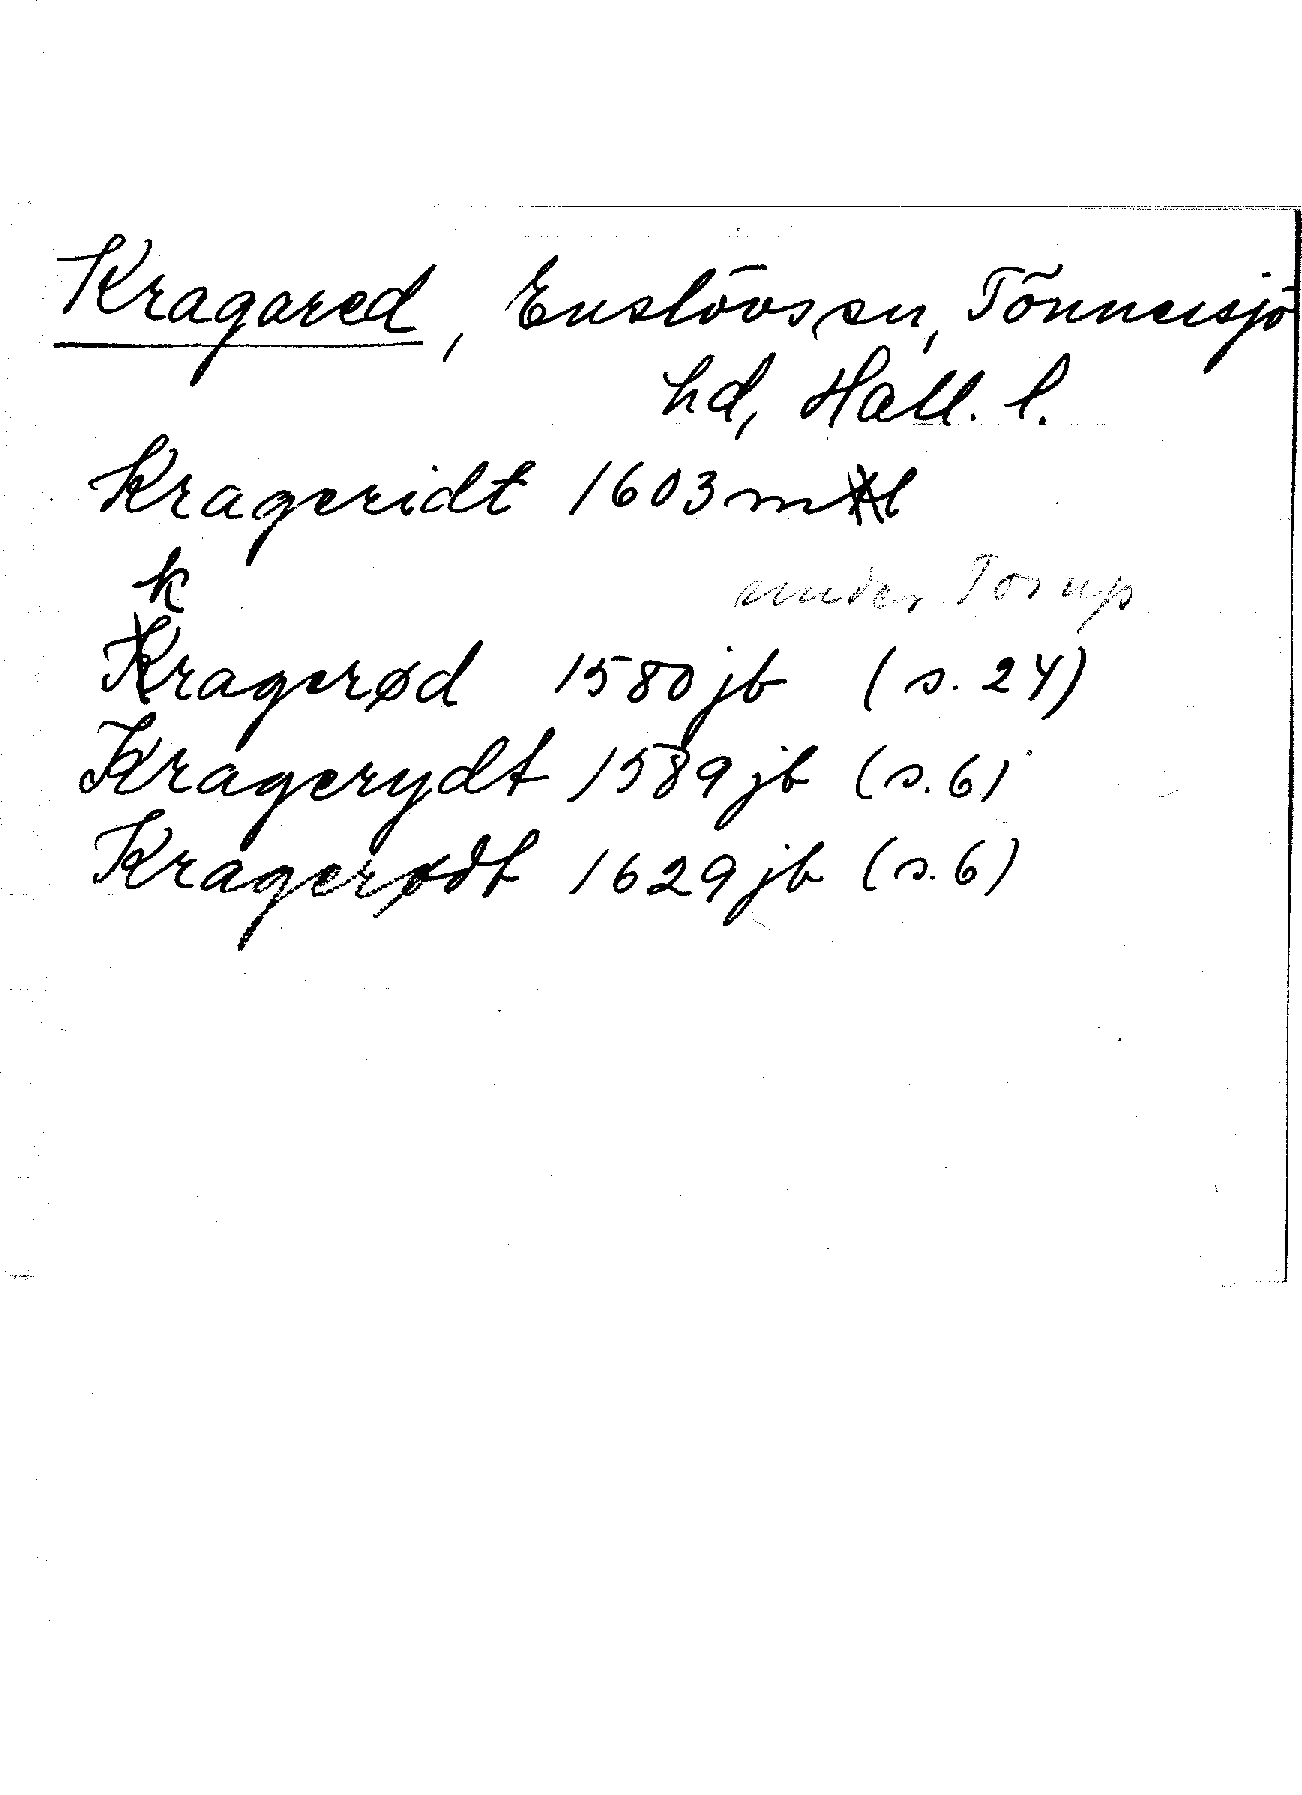 Kragared, Enslövs sn, Tönnersjö
hd, Hall. l.
Krageridt 1603 ml
under Torup
kragerød 1580 jb (s. 24)
Kragerydt 1589 jb (s. 6)
Kragerødt 1629 jb (s. 6)